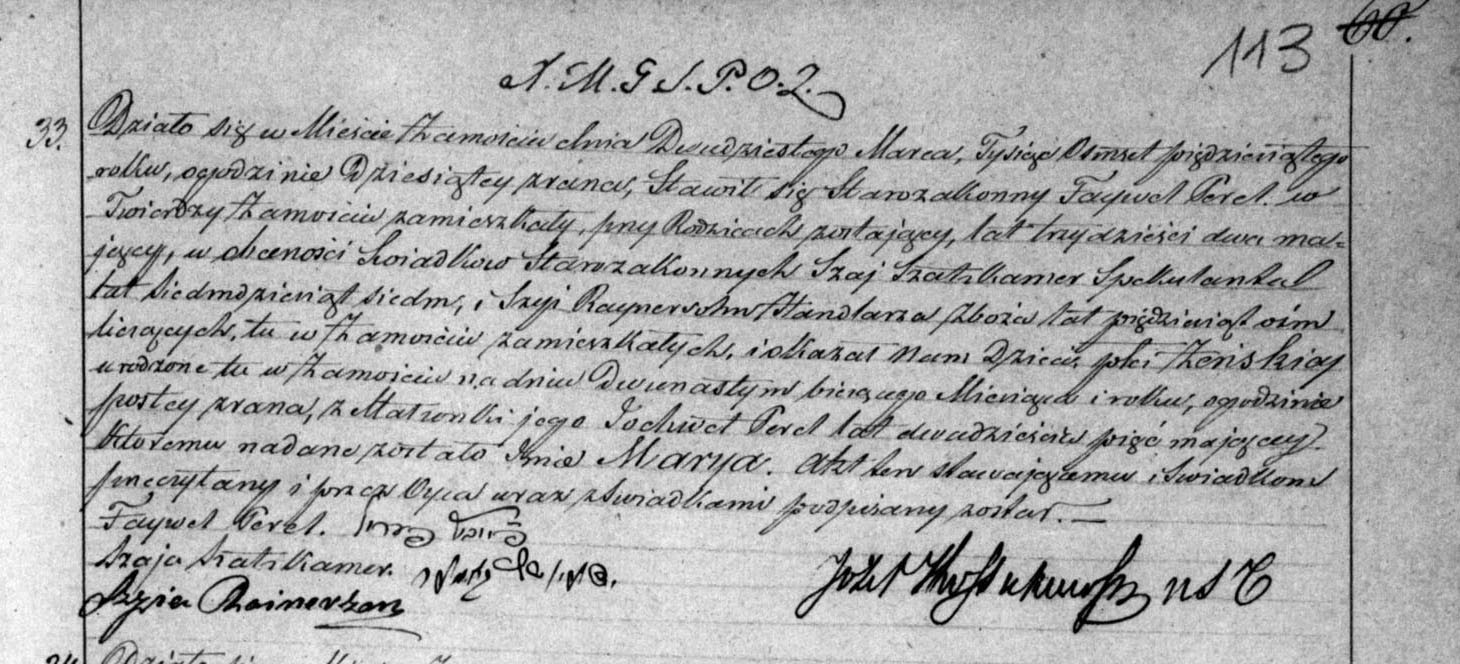 113 60.
N. M. G S. P. O. Z.
33. Działo się w Mieście Zamościu dnia Dwudziestego Marca, Tysiąc Osmset pięćdziesiątego
roku, ogodzinie Dziesiątey zrana, Stawił się Starozakonny Faywel Perel. w
Twierdzy Zamościu zamieszkały, przy Rodzicach zostający, lat trzydzieści dwa ma=
jący, w obecności Swiadkow Starozakonnych Szaj Szatzkamer Spekulanta
lat siedmdziesiąt siedm, i Szyi Raynersohn Handlarza Zboża lat pięćdziesiąt ośm
liczących, tu w Zamościu zamieszkałych, i okazał Nam Dziecię płci Żeńskiey
urodzone tu w Zamościu na dniu Dwunastym bieżącego Miesiąca i roku, ogodzinie
postey zrana, z Małżonki jego Jochwet Perel lat dwadzieścia pięć mającey
któremu nadane zostało Imie Marya. Akt ten stawającemu i Swiadkom
przeczytany i przez Oyca wraz z Swiadkami podpisany został.—
Faywel Perel.
Szaja Szatzkamer.
Szyia Rainerzon
Józef nSC
Działo się w